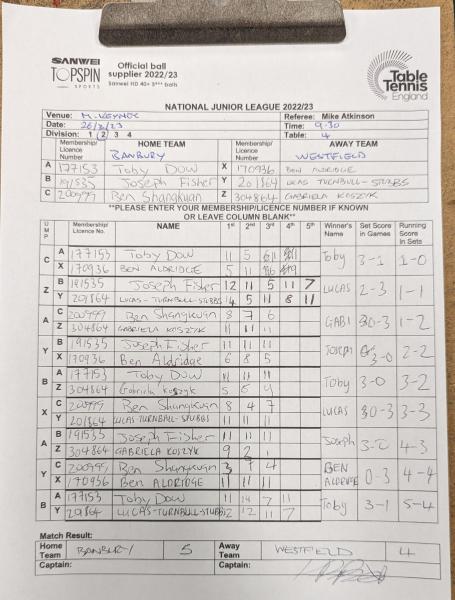 SANWEI
TOPSPIN
SPORTS
Official ball
supplier 2022/23
Sanwei HD 40+ 3*** balls
Table
Tennis
England
NATIONAL JUNIOR LEAGUE 2022/23
Venue: Referee: Mike Atkinson
Date: Time: 9-30
Division: 1 2 3 4 Table: 4
Membership/ Licence Number HOME TEAM Membership/ Licence Number AWAY TEAM
BANBURY WESTFIELD
A 177153 Toby Dow X 170936 BEN ALDRIDGE
B 191535 Joseph Fisher Y 201864 LUCAS TURNBULL-STUBBS
C 200999 Ben Shangkuan Z 304864 GABRIELA KOSZYK
**PLEASE ENTER YOUR MEMBERSHIP/LICENCE NUMBER IF KNOWN
OR LEAVE COLUMN BLANK**
UMP Membership/ Licence No. NAME 1st 2nd 3rd 4th 5th Winner's Name Set Score in Games Running Score In Sets
C A 177153 Toby Dow 11 5 11 Toby 3-1 1-0
X 170936 BEN ALDRIDGE 5 11
Z B 191535 Joseph Fisher 12 11 5 11 7 LUCAS 2-3 1-1
Y 201864 LUCAS-TURNBULL-STUBBS 14 5 11 8 11
A C 200999 Ben Shangkuan 8 7 6 GABI 0-3 1-2
Z 304864 GABRIELA KOSZYK 11 11 11
Y B 191535 Joseph Fisher 11 11 11 Joseph 3-0 2-2
X 170936 Ben Aldridge 6 8 5
B A 177153 Toby Dow 11 11 11 Toby 3-0 3-2
Z 304864 Gabriela Koszyk 5 5 9
X C 200999 Ben Shangkuan 8 4 7 LUCAS 0-3 3-3
Y 201864 LUCAS-TURNBULL-STUBBS 11 11 11
A B 191535 Joseph Fisher 11 11 11 Joseph 3-0 4-3
Z 304864 GABRIELA KOSZYK 9 2
Y C 200999 Ben Shangkuan 3 9 4 BEN ALDRIDGE 0-3 4-4
X 170936 Ben ALDRIDGE 11 11 11
B A 177153 Toby Dow 11 14 7 11 Toby 3-1 5-4
Y 20864 LUCAS-TURNBULL-STUBBS 12 11 7
Match Result:
Home Team BANBURY 5 Away Team WESTFIELD 4
Captain: Captain: